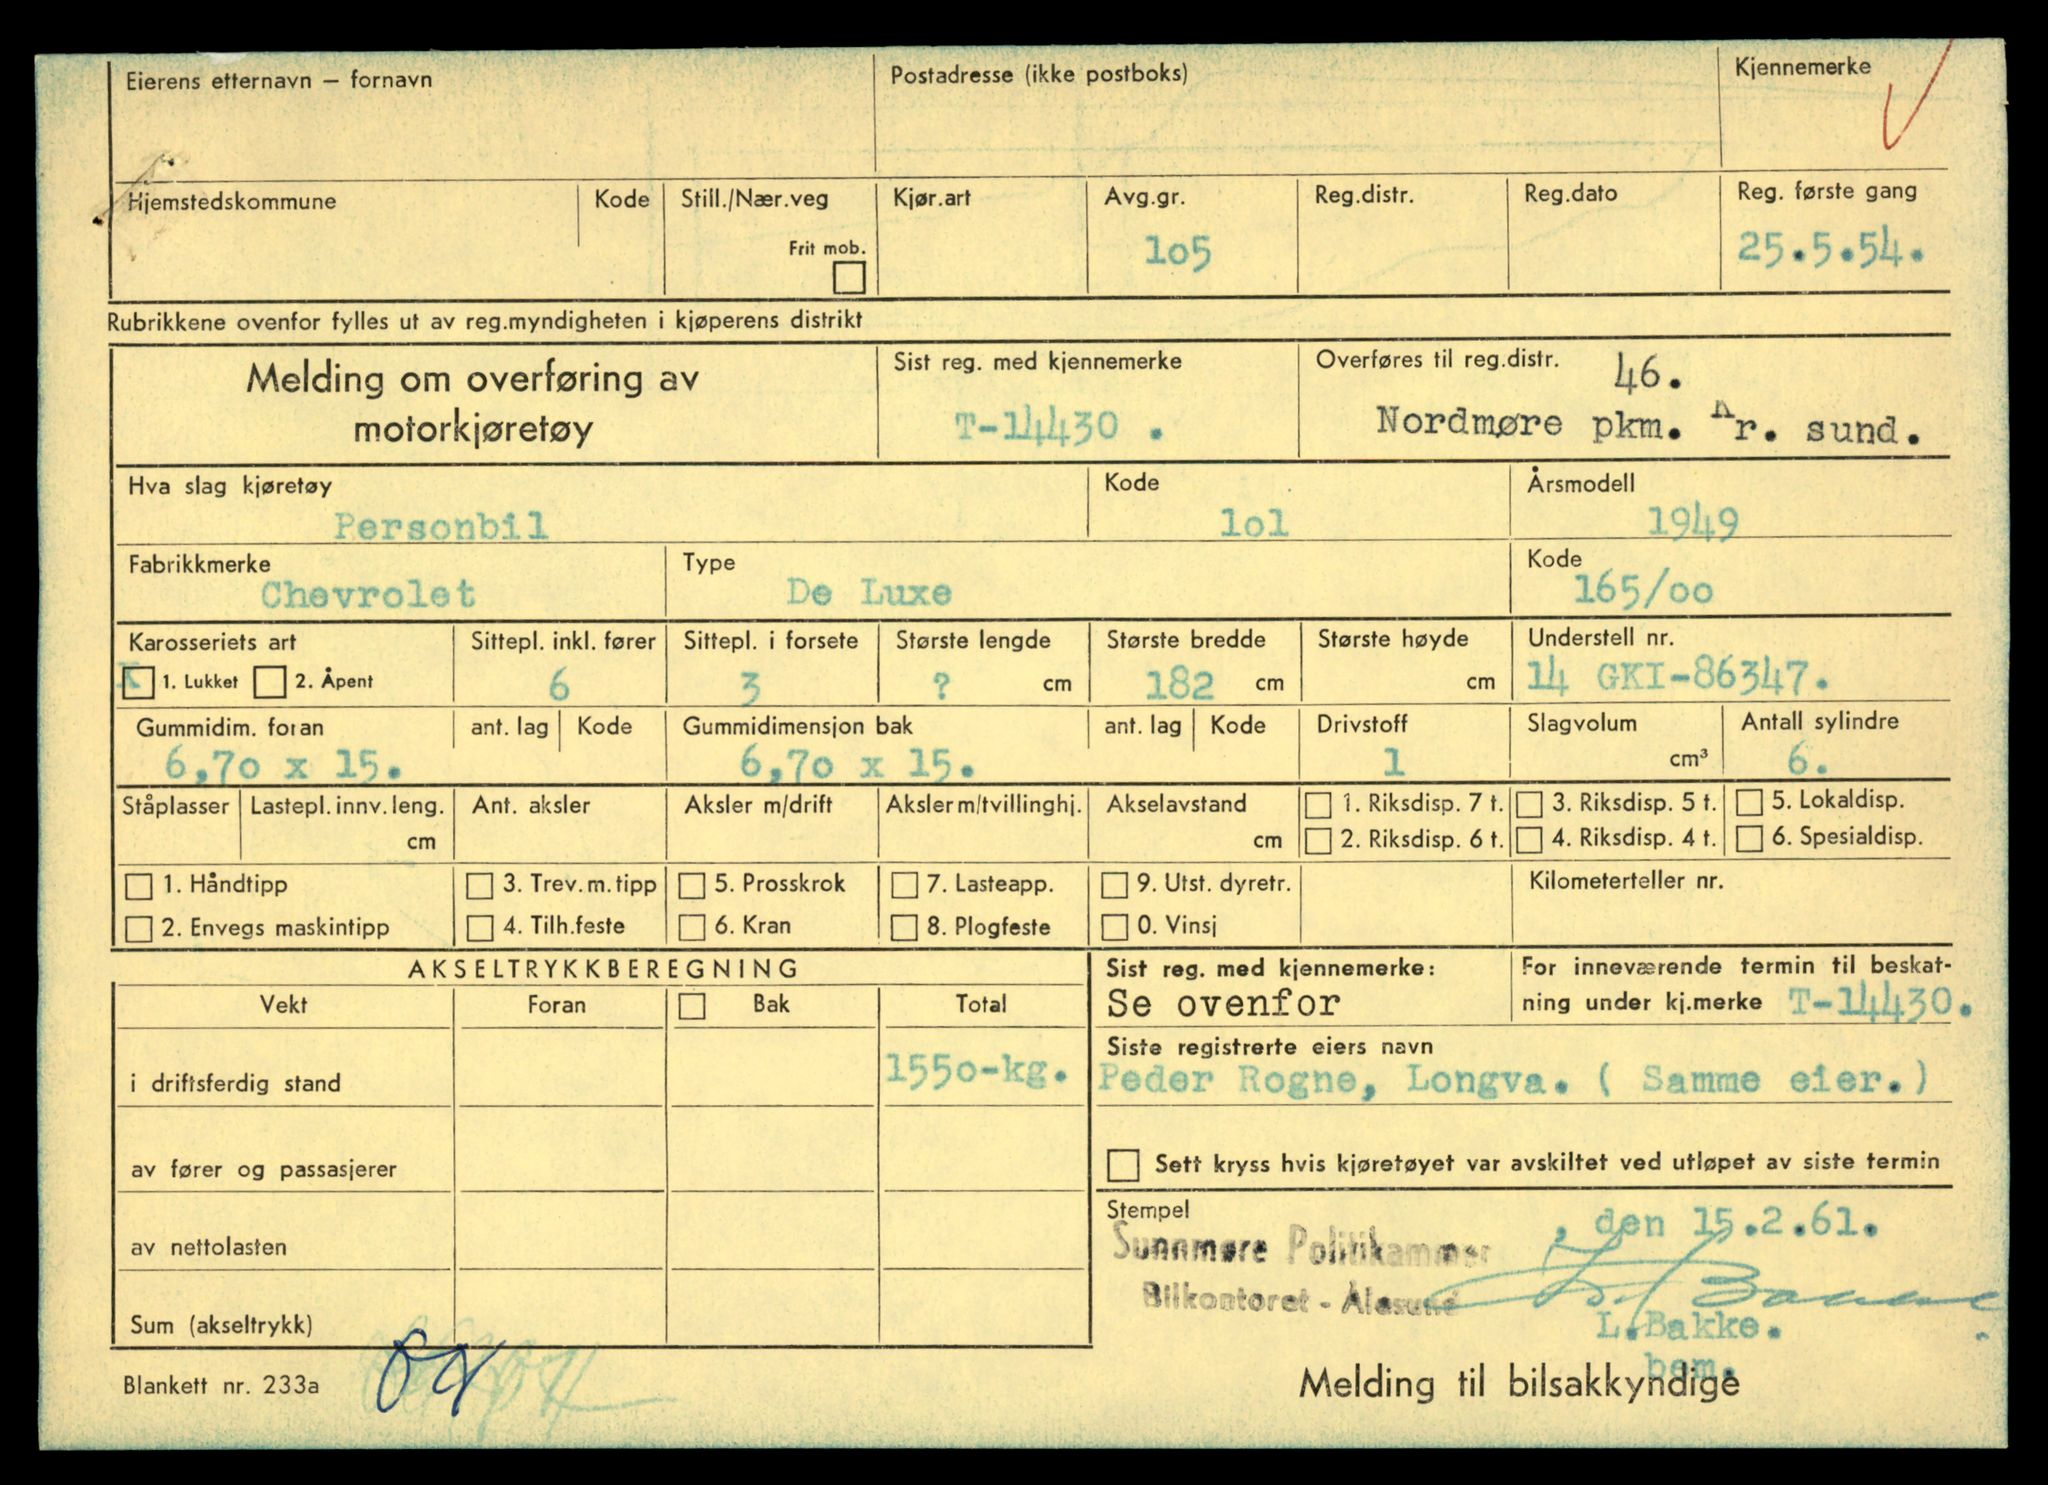 Eierens etternavn – fornavn Postadresse (ikke postboks) Kjennemerke
Hjemstedskommune Kode Still./Nær.veg Kjør.art Avg.gr. Reg.distr. Reg.dato Reg. første gang
Frit mob. 1o5 25.5.54.
Rubrikkene ovenfor fylles ut av reg.myndigheten i kjøperens distrikt
Melding om overføring av motorkjøretøy
Sist reg. med kjennemerke
T-14430 .
Overføres til reg.distr. 46.
Nordmøre pkm. Kr. sund.
Hva slag kjøretøy Kode Årsmodell
Personbil 1o1 1949
Fabrikkmerke Type Kode
Chevrolet De Luxe 165/oo
Karosseriets art Sittepl. inkl. fører Sittepl. i forsete Største lengde Største bredde Største høyde Understell nr.
X 1. Lukket 2. Åpent 6 3 ? cm 182 cm cm 14 GKI-86347.
Gummidim. foran ant. lag Kode Gummidimensjon bak ant. lag Kode Drivstoff Slagvolum Antall sylindre
6,7o x 15. 6,7o x 15. 1 cm³ 6.
Ståplasser Lastepl. innv. leng. Ant. aksler Aksler m/drift Aksler m/tvillinghj. Akselavstand 1. Riksdisp. 7 t. 3. Riksdisp. 5 t. 5. Lokaldisp.
cm cm 2. Riksdisp. 6 t. 4. Riksdisp. 4 t. 6. Spesialdisp.
1. Håndtipp 3. Trev. m. tipp 5. Prosskrok 7. Lasteapp. 9. Utst. dyretr. Kilometerteller nr.
2. Envegs maskintipp 4. Tilh.feste 6. Kran 8. Plogfeste 0. Vinsj
AKSELTRYKKBEREGNING
Vekt Foran Bak Total
i driftsferdig stand 155o-kg.
av fører og passasjerer
av nettolasten
Sum (akseltrykk)
Sist reg. med kjennemerke:
Se ovenfor
For inneværende termin til beskat-
ning under kj.merke T-14430.
Siste registrerte eiers navn
Peder Rogne, Longva. ( Samme eier.)
Sett kryss hvis kjøretøyet var avskiltet ved utløpet av siste termin
Stempel
, den 15.2.61.
Sunnmøre Politikammer
Bilkontoret - Ålesund
L.Bakke.
bem.
Blankett nr. 233a
Melding til bilsakkyndige